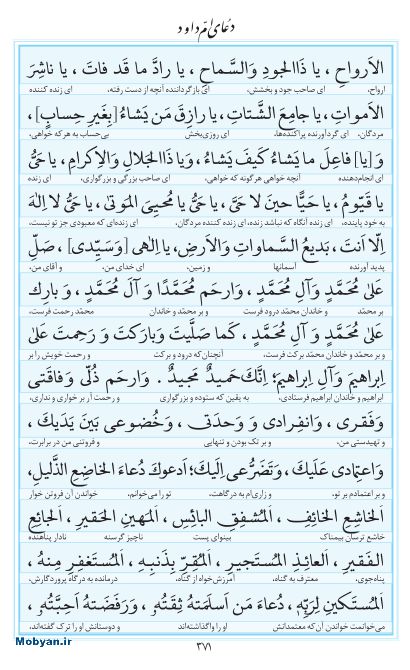 دعای امّ داود
الاَرواحِ ، یا ذَاالجودِ وَالسَّماحِ ، یا رادَّ ما قَد فاتَ ، یا ناشِرَ
ارواح، ای صاحب جود و بخشش، ای بازگرداننده آنچه از دست رفته، ای زنده کننده
الاَمواتِ ، یا جامِعَ الشَّتاتِ ، یا رازِقَ مَن یَشاءُ [بِغَیرِ حِسابٍ] ،
مردگان، ای گردآورنده پراکنده‌ها، ای روزی‌بخش بی‌حساب به هرکه خواهی،
وَ [یا] فاعِلَ ما یَشاءُ کَیفَ یَشاءُ ، وَیا ذَاالجَلالِ وَالاِکرامِ ، یا حَیُّ
ای انجام‌دهنده آنچه خواهی هرگونه که خواهی، ای صاحب بزرگی و بزرگواری، ای زنده
یا قَیّومُ ، یا حَیًّا حینَ لا حَیَّ ، یا حَیُّ یا مُحیِیَ المَوتیٰ ، یا حَیُّ لا اِلٰهَ
به خود پاینده، ای زنده آنگاه که نباشد زنده، ای زنده کننده مردگان، ای زنده‌ای که معبودی جز تو نیست،
اِلّا اَنتَ ، بَدیعُ السَّماواتِ وَالاَرضِ ، یا اِلٰهی [وَسَیِّدی] ، صَلِّ
پدید آورنده آسمانها و زمین، ای خدای من، و آقای من،
عَلیٰ مُحَمَّدٍ وَآلِ مُحَمَّدٍ ، وَارحَم مُحَمَّدًا وَ آلَ مُحَمَّدٍ ، وَ بارِک
بر محمّد و خاندان محمّد درود فرست و بر محمّد و خاندان محمّد رحمت فرست،
عَلیٰ مُحَمَّدٍ وَ آلِ مُحَمَّدٍ ، کَما صَلَّیتَ وَبارَکتَ وَ رَحِمتَ عَلیٰ
و بر محمّد و خاندان محمّد برکت فرست، آنچنان‌که درود و برکت و رحمت خویش را بر
اِبراهیمَ وَآلِ اِبراهیمَ ؛ اِنَّکَ حَمیدٌ مَجیدٌ . وَارحَم ذُلّی وَفاقَتی
ابراهیم و خاندان ابراهیم فرستادی، به یقین که ستوده و بزرگواری و رحمت آر بر خواری و نداری،
وَفَقری ، وَانفِرادی وَ وَحدَتی ، وَخُضوعی بَینَ یَدَیکَ ،
و تهیدستی من، و بر تک بودن و تنهایی و فروتنی من در برابرت،
وَاعتِمادی عَلَیکَ ، وَتَضَرُّعی اِلَیکَ ؛ اَدعوکَ دُعاءَ الخاضِعِ الذَّلیلِ ،
و بر اعتمادم بر تو، و زاری‌ام به درگاهت، تو را می‌خوانم، خواندن آن فروتن خوار
اَلخاشِعِ الخائِفِ ، اَلمُشفِقِ البائِسِ ، اَلمَهینِ الحَقیرِ ، اَلجائِعِ
خاشع ترسان بیمناک بینوای پست ناچیز گرسنه نادار پناهنده
الفَقیرِ ، اَلعائِذِ المُستَجیرِ ، اَلمُقِرِّ بِذَنبِهِ ، اَلمُستَغفِرِ مِنهُ ،
پناه‌جوی، معترف به گناه، آمرزش‌خواه از گناه، درمانده به درگاه پروردگارش،
اَلمُستَکینِ لِرَبِّهِ ، دُعاءَ مَن اَسلَمَتهُ ثِقَتُهُ ، وَرَفَضَتهُ اَحِبَّتُهُ ،
می‌خوانمت خواندن آن‌که معتمدانش او را واگذاشته‌اند و دوستانش او را ترک گفته‌اند،
۳۷۱
Mobyan.ir